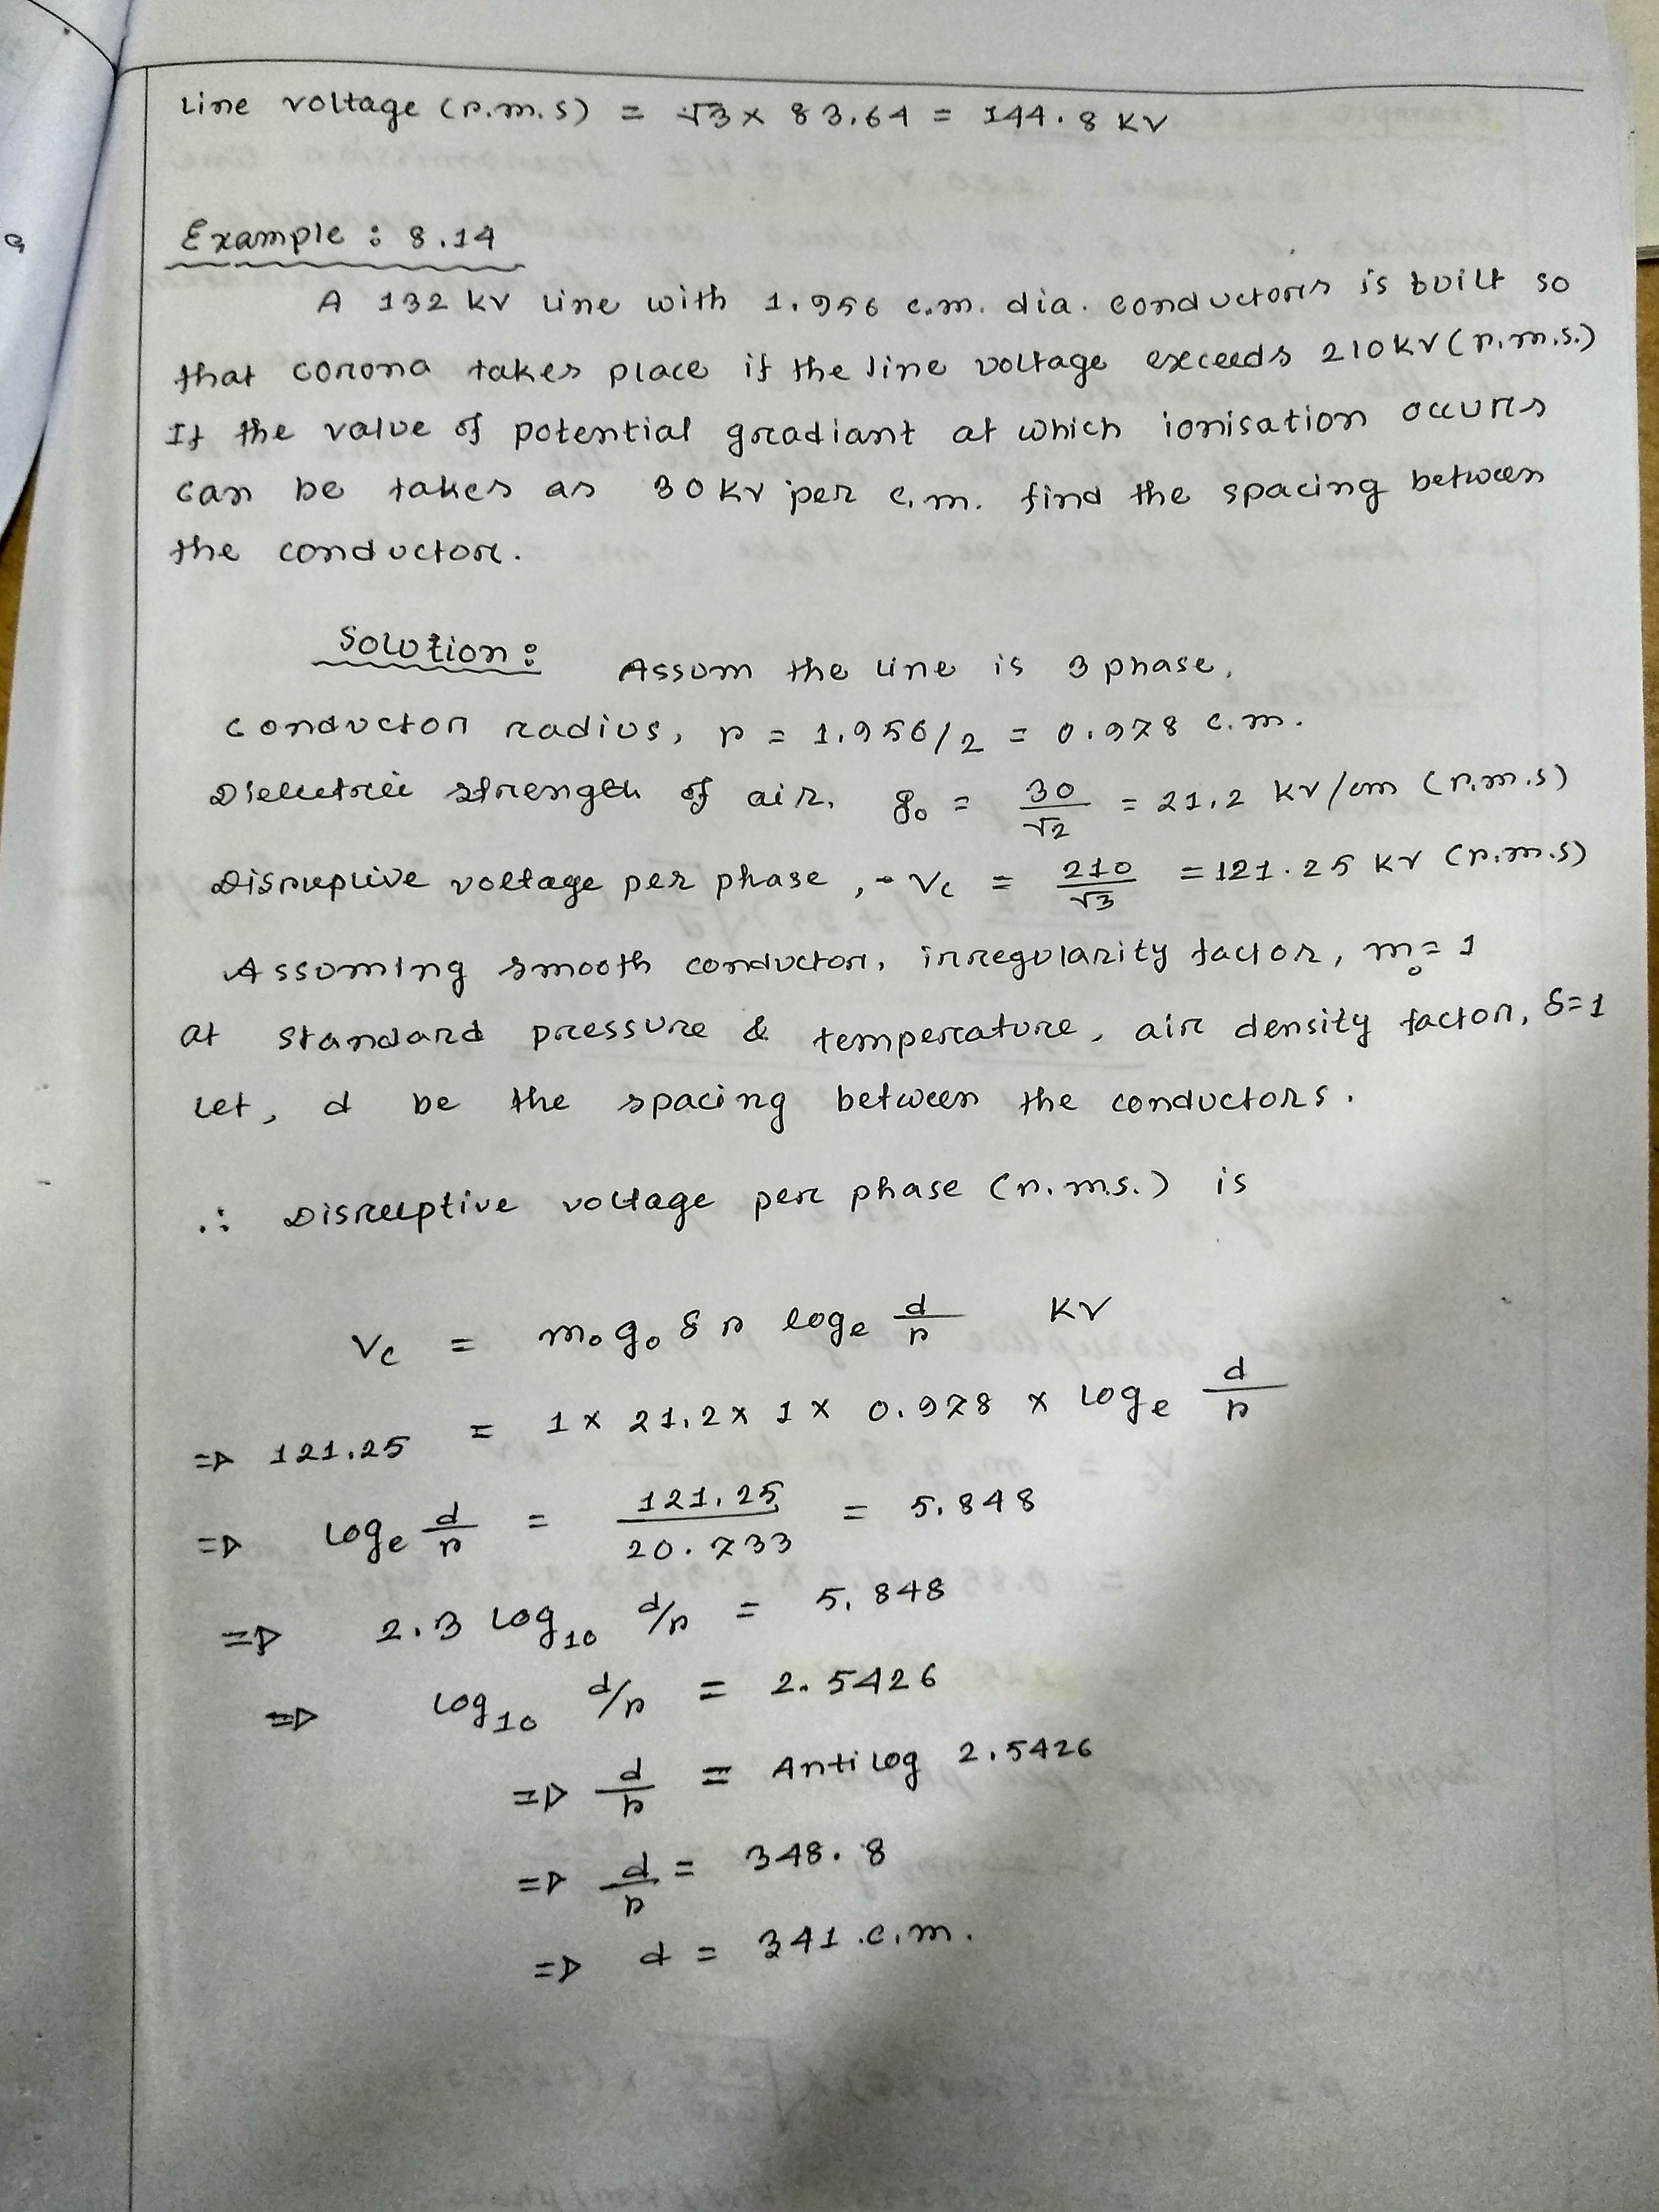 Line voltage (r.m.s) = √3 x 83.64 = 144.8 KV
Example : 8.14
A 132 kv line with 1.956 c.m. dia. conductors is built so
that corona takes place if the line voltage exceeds 210kv (r.m.s.)
If the value of potential gradiant at which ionisation occurs
can be takes as 30 kv per c.m. find the spacing between
the conductor.
Solution : Assum the line is 3 phase,
conductor radius, r = 1.956/2 = 0.978 c.m.
Dielectric strength of air, g₀ = 30/√2 = 21.2 kv/cm (r.m.s)
Disruptive voltage per phase, - Vc = 210/√3 = 121.25 KV (r.m.s)
Assuming smooth conductor, irregularity factor, m₀ = 1
at standard pressure & temperature, air density factor, δ=1
Let, d be the spacing between the conductors.
∴ Disruptive voltage per phase (r.m.s.) is
Vc = m₀ g₀ δ r logₑ d/r KV
⇒ 121.25 = 1 x 21.2 x 1 x 0.978 x logₑ d/r
⇒ logₑ d/r = 121.25/20.733 = 5.848
⇒ 2.3 log₁₀ d/r = 5.848
⇒ log₁₀ d/r = 2.5426
⇒ d/r = Antilog 2.5426
⇒ d/r = 348.8
⇒ d = 341 c.m.